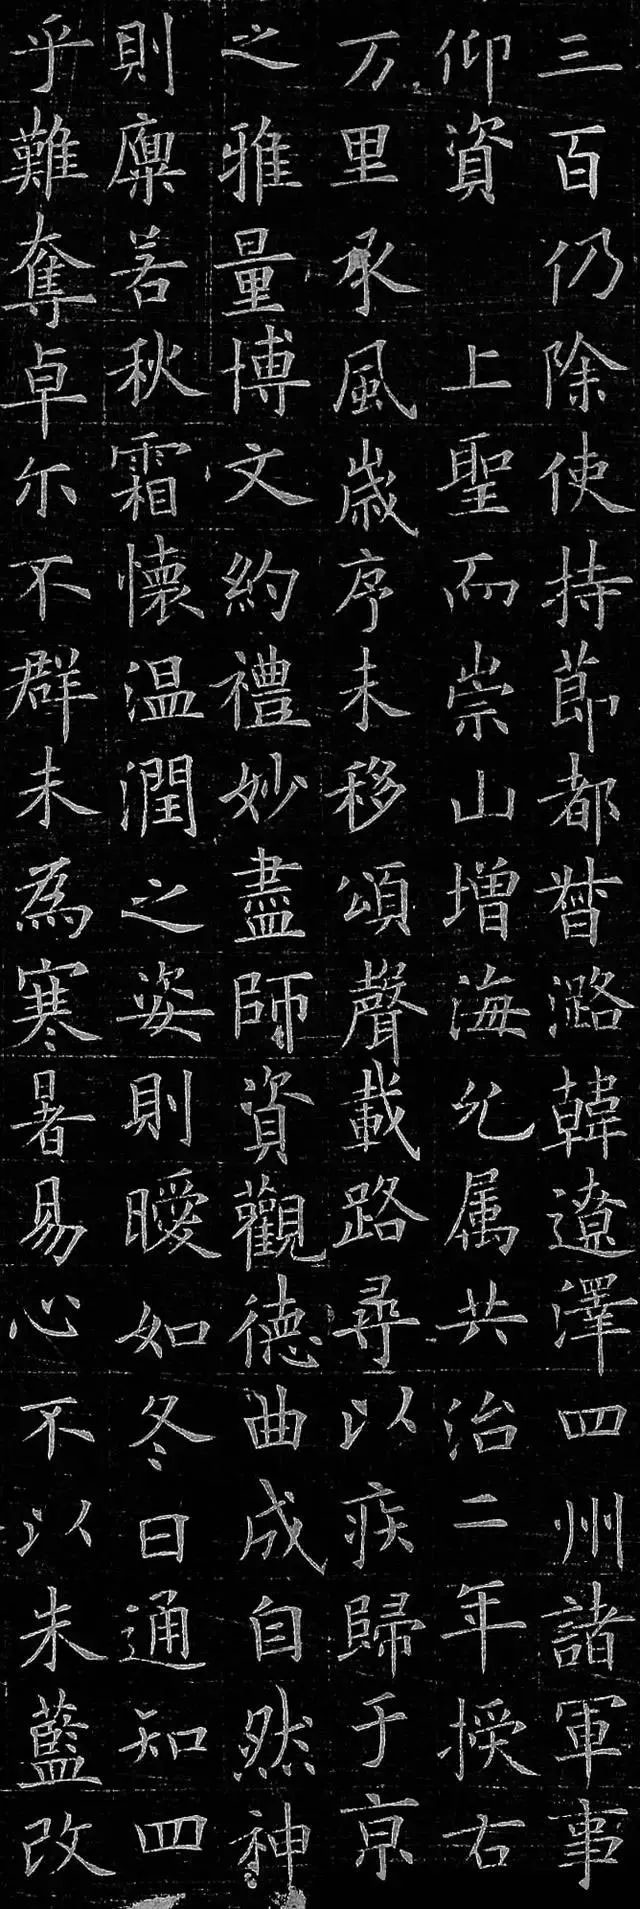 三百仍除使持節都督潞韓遼澤四州諸軍事
仰資上聖而崇山增海允属共治二年授右
万里承風歳序未移頌聲載路尋以疾歸于京
之雅量博文約禮妙盡師資觀德曲成自然神
則廩若秋霜懷温潤之姿則曖如冬日通知四
乎難奪卓尓不群未為寒暑易心不以朱藍改